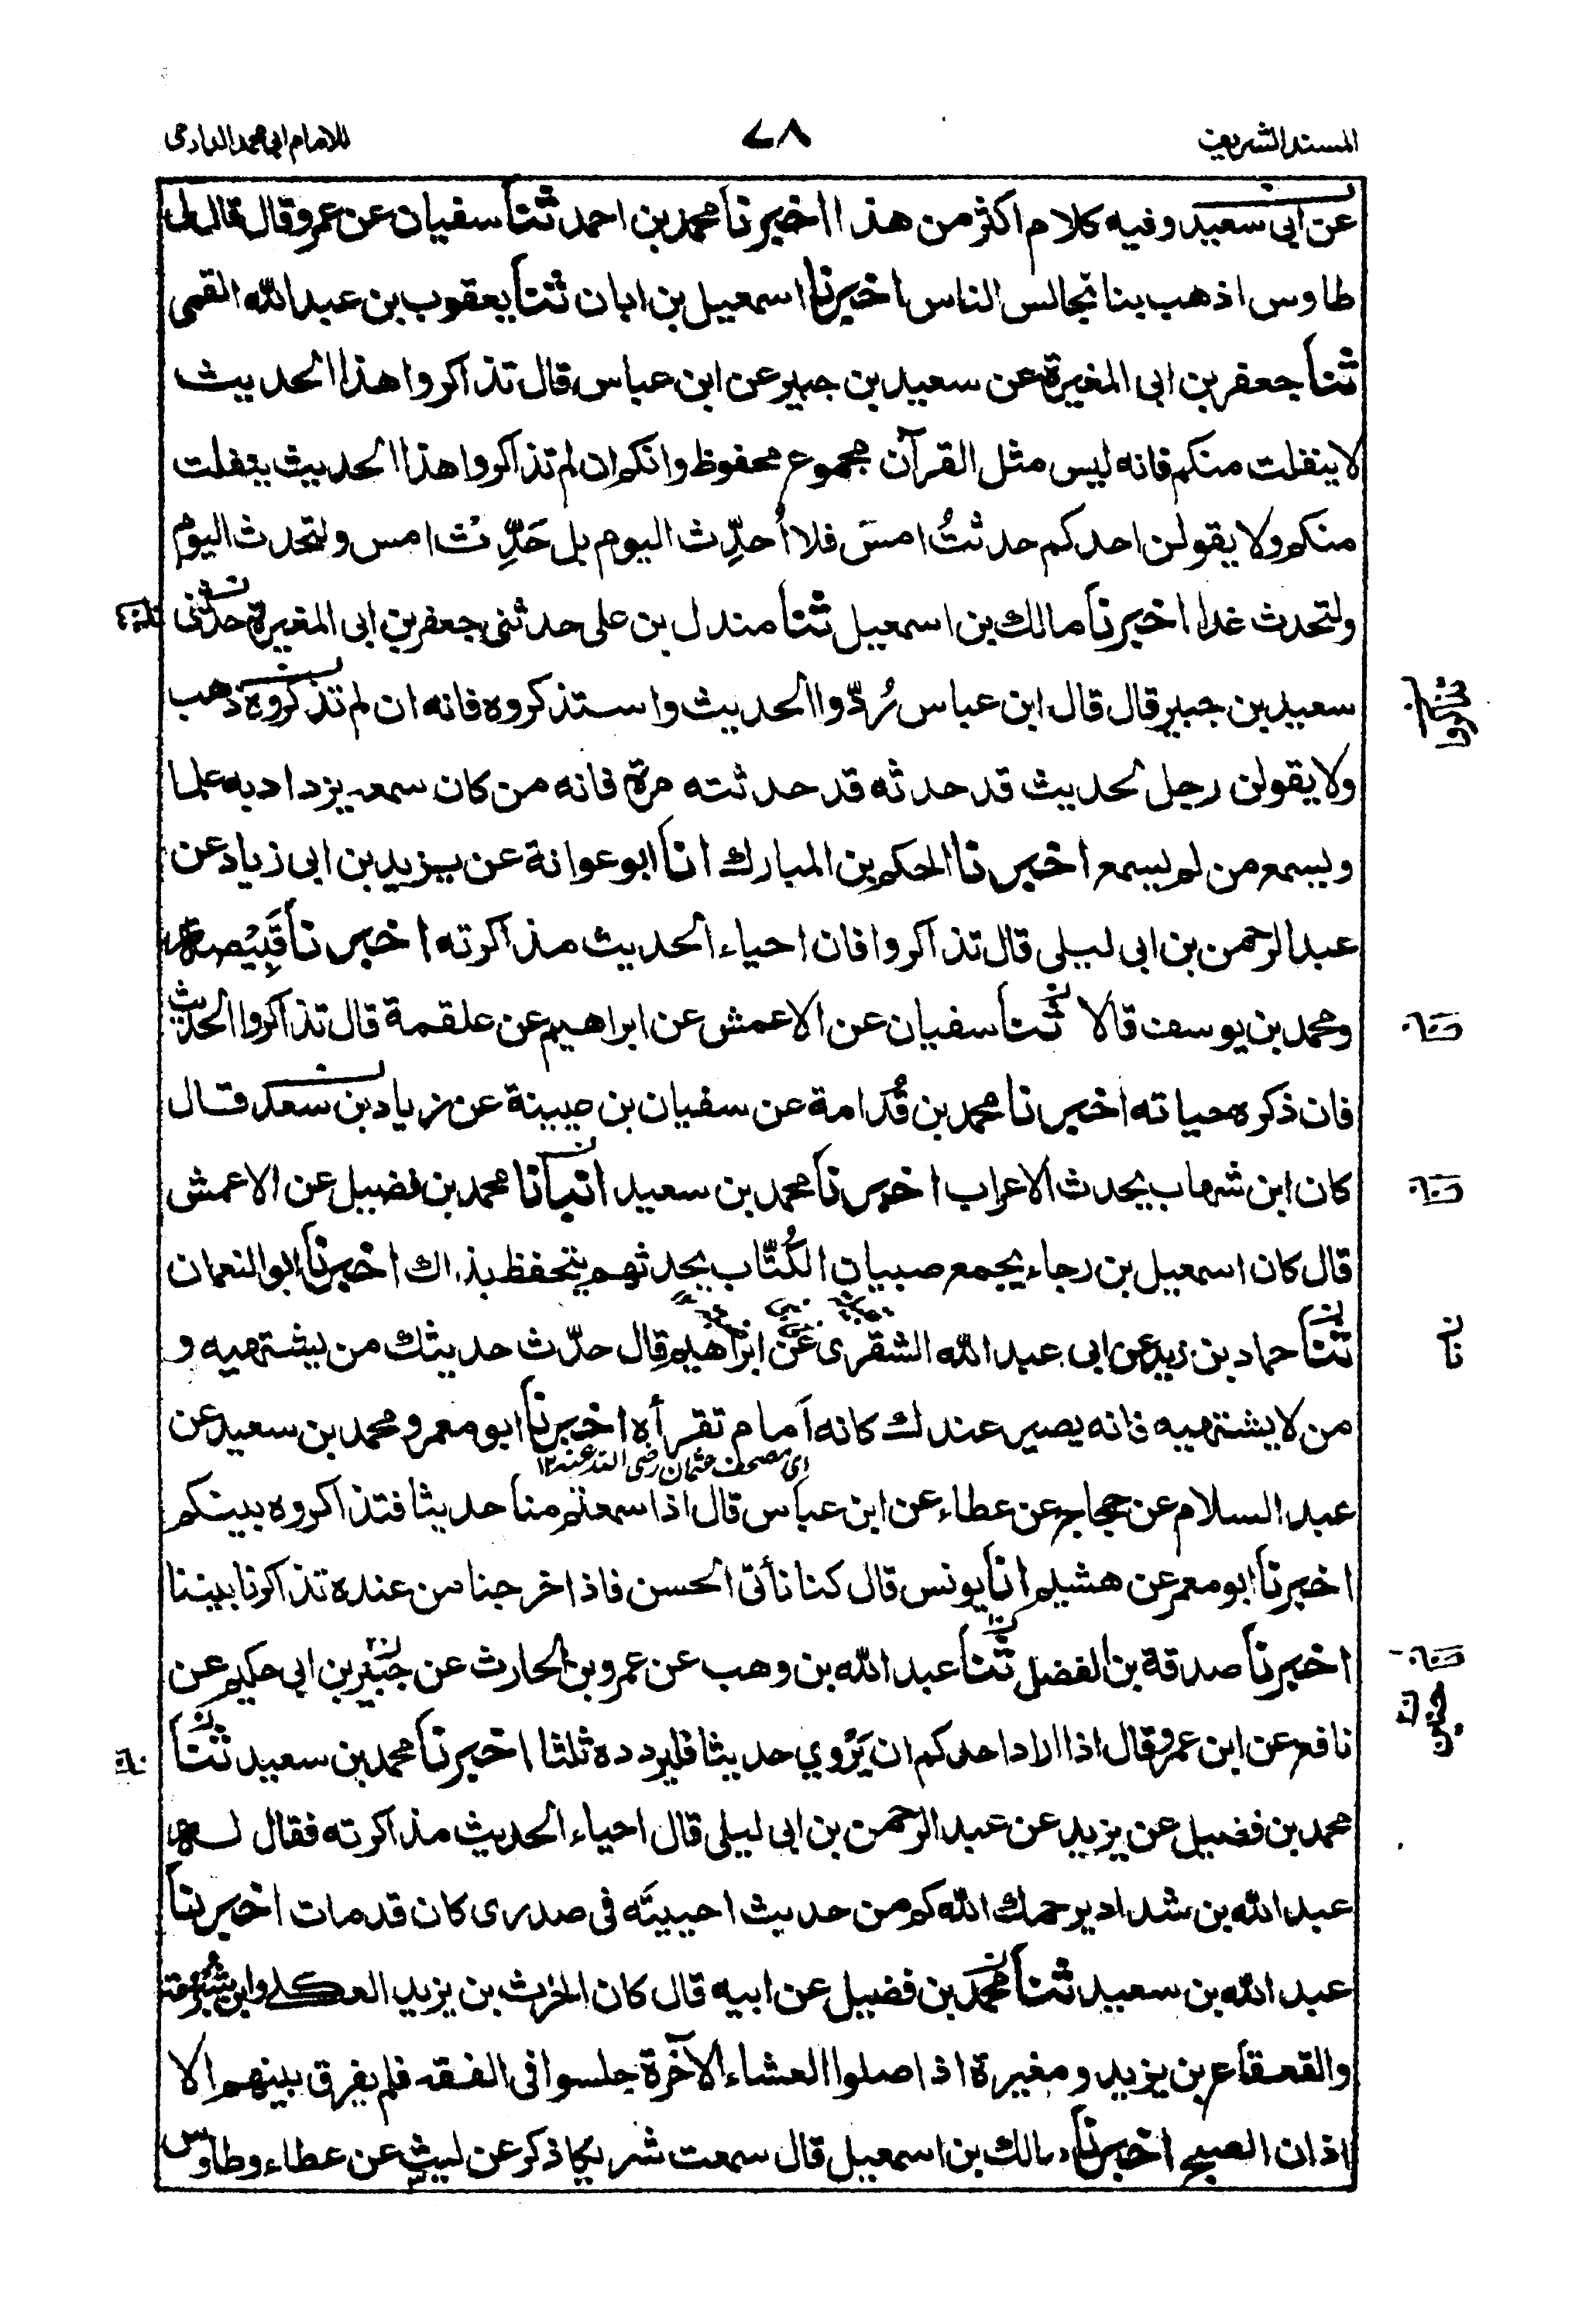 المسند الشريف
٧٨
للامام ابي محمد الدارمي
عن ابى سعيد وفيه كلام اكثر من هذا اخبرنا محمد بن احمد ثنا سفيان عن عمرو قال قال لى
طاوس اذهب بنا نجالس الناس اخبرنا اسمعيل بن ابان ثنا يعقوب بن عبد الله القمى
ثنا جعفر بن ابى المغيرة عن سعيد بن جبير عن ابن عباس قال تذاكروا هذا الحديث
لا ينفلت منكم فانه ليس مثل القرآن مجموع محفوظ وانكم ان لم تذاكروا هذا الحديث ينفلت
منكم ولا يقولن احدكم حدثتُ امسَ فلا اُحدِّث اليوم بل حَدِّث امس ولتحدث اليوم
ولتحدث غدا اخبرنا مالك بن اسمعيل ثنا مندل بن على حدثنى جعفر بن ابى المغيرة حدثنى
سعيد بن جبير قال قال ابن عباس رُدّوا الحديث واستذكروه فانه ان لم تذكروه ذهب
ولا يقولن رجل لحديث قد حدثه قد حدثته مرة فانه من كان سمعه يزداد به علما
ويسمع من لم يسمع اخبرنا الحكم بن المبارك انا ابو عوانة عن يزيد بن ابى زياد عن
عبد الرحمن بن ابى ليلى قال تذاكروا فان احياء الحديث مذاكرته اخبرنا قَبِيْصة
ومحمد بن يوسف قالا ثنا سفيان عن الاعمش عن ابراهيم عن علقمة قال تذاكروا الحديث
فان ذكره حياته اخبرنا محمد بن قُدامة عن سفيان بن عيينة عن زياد بن سعد قال
كان ابن شهاب يحدث الاعراب اخبرنا محمد بن سعيد انبانا محمد بن فضيل عن الاعمش
قال كان اسمعيل بن رجاء يجمع صبيان الكُتّاب يحدثهم يتحفظ بذاك اخبرنا ابو النعمان
ثنا حماد بن زيد عن ابى عبد الله الشقرى عن ابراهيم قال حدّث حديثك من يشتهيه و
نا
من لا يشتهيه فانه يصير عندك كانه اَمام تقرأه اخبرنا ابو معمر ومحمد بن سعيد عن
اى مصحف عثمان رضى الله عنه ١٢
عبد السلام عن حجاج عن عطاء عن ابن عباس قال اذا سمعتم منا حديثا فتذاكروه بينكم
اخبرنا ابو معمر عن هشيم انا يونس قال كنا نأتى الحسن فاذا خرجنا من عنده تذاكرنا بيننا
اخبرنا صدقة بن الفضل ثنا عبد الله بن وهب عن عمرو بن الحارث عن جبير بن ابى حكيم عن
نافع عن ابن عمر وقال اذا اراد احدكم ان يَرْوي حديثا فليردده ثلثا اخبرنا محمد بن سعيد ثنا
محمد بن فضيل عن يزيد عن عبد الرحمن بن ابى ليلى قال احياء الحديث مذاكرته فقال له
عبد الله بن شداد يرحمك الله كم من حديث احييتَه فى صدرى كان قد مات اخبرنا
عبد الله بن سعيد ثنا محمد بن فضيل عن ابيه قال كان الحٰرث بن يزيد العكلى وابن شُبْرُمة
والقعقاع بن يزيد ومغيرة اذا صلوا العشاء الآخرة جلسوا فى الفقه فلم يفرق بينهم الا
اذان الصبح اخبرنا مالك بن اسمعيل قال سمعت شريكا ذكر عن ليث عن عطاء وطاوس